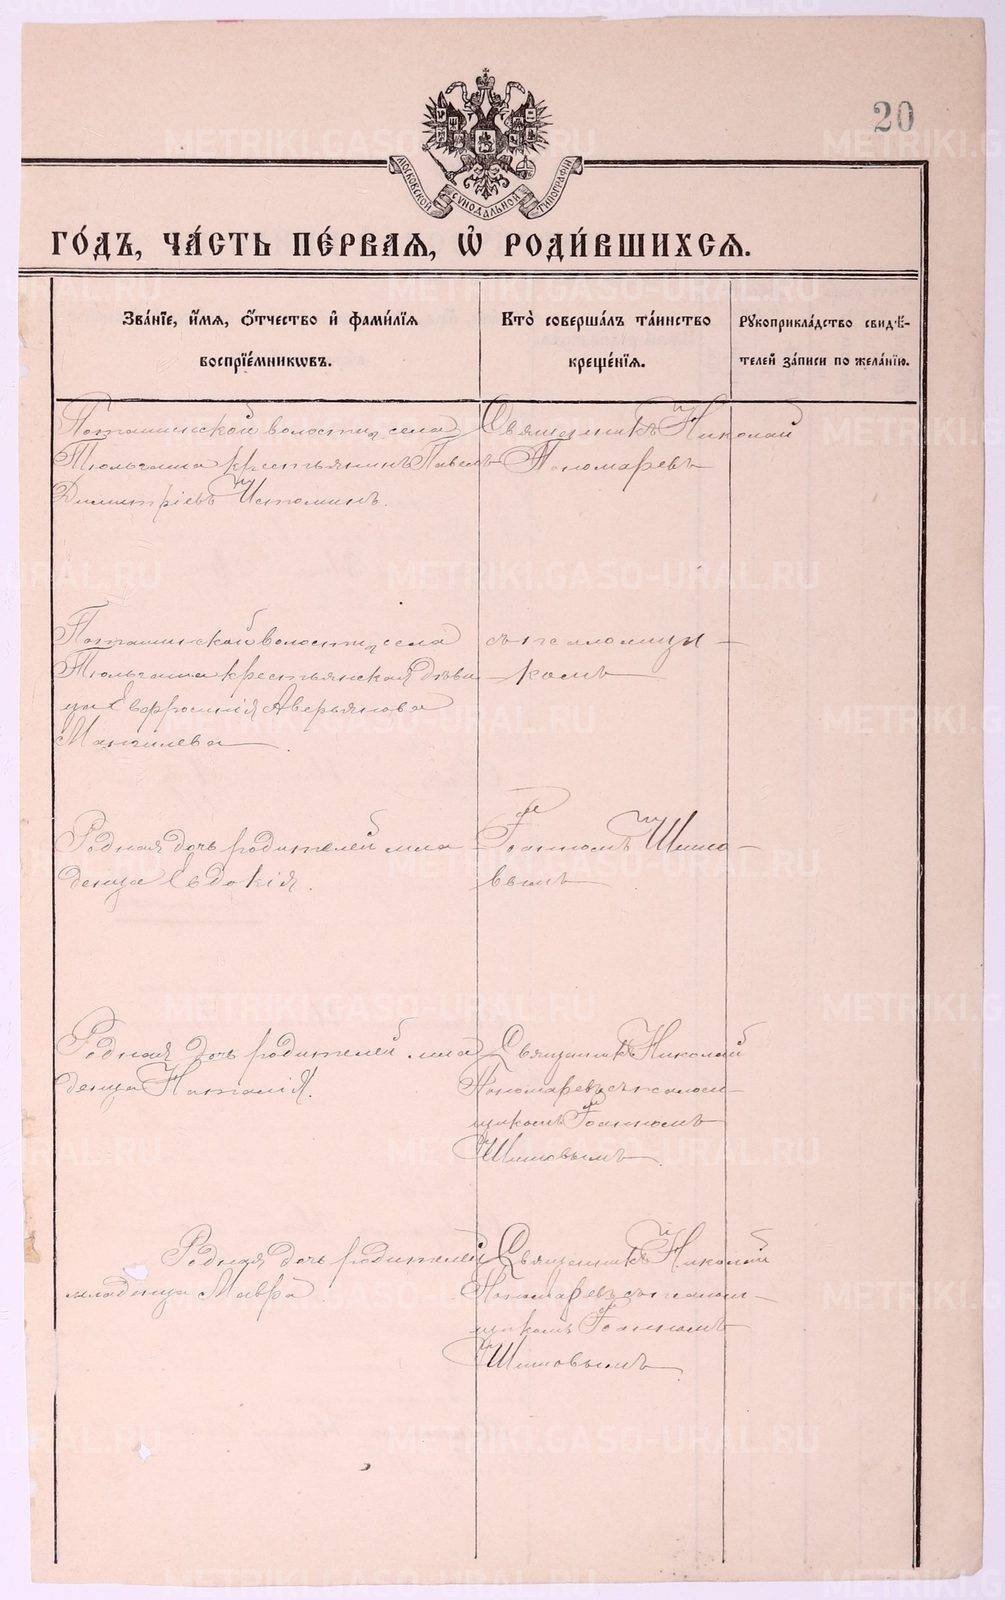 20
МОСКОВСКОЙ СѴНОДАЛЬНОЙ ТИПОГРАФІИ
ГО́ДЪ, ЧА́СТЬ ПЕ́РВАЯ, Ѽ РОДИ́ВШИХСЯ.
Зва́нїе, и҆́мя, ѻ҆́тчество и҆ фами́лїя
воспрїе́мникѡвъ.
Кто̀ соверша́лъ та́инство
креще́нїя.
Рꙋкоприкла́дство свидѣ́-
телей за́писи по жела́нїю.
Поташинской волости, села
Тюльгаша крестьянинъ Павелъ
Димитріевъ Истоминъ.
Священникъ Николай
Пономаревъ
Поташинской волости, села
Тюльгаша крестьянская дѣви
ца Евфросинія Аверьянова
Мангилева.
съ псаломщи-
комъ
Родная дочь родителей мла
денца Евдокія.
Іоанномъ Шишо-
вымъ
Родная дочь родителей мла
денца Наталія.
Священникъ Николай
Пономаревъ съ псалом-
щикомъ Іоанномъ
Шишовымъ.
Родная дочь родителей
младенца Мавра.
Священникъ Николай
Пономаревъ съ псалом-
щикомъ Іоанномъ
Шишовымъ.
METRIKI.GASO-URAL.RU